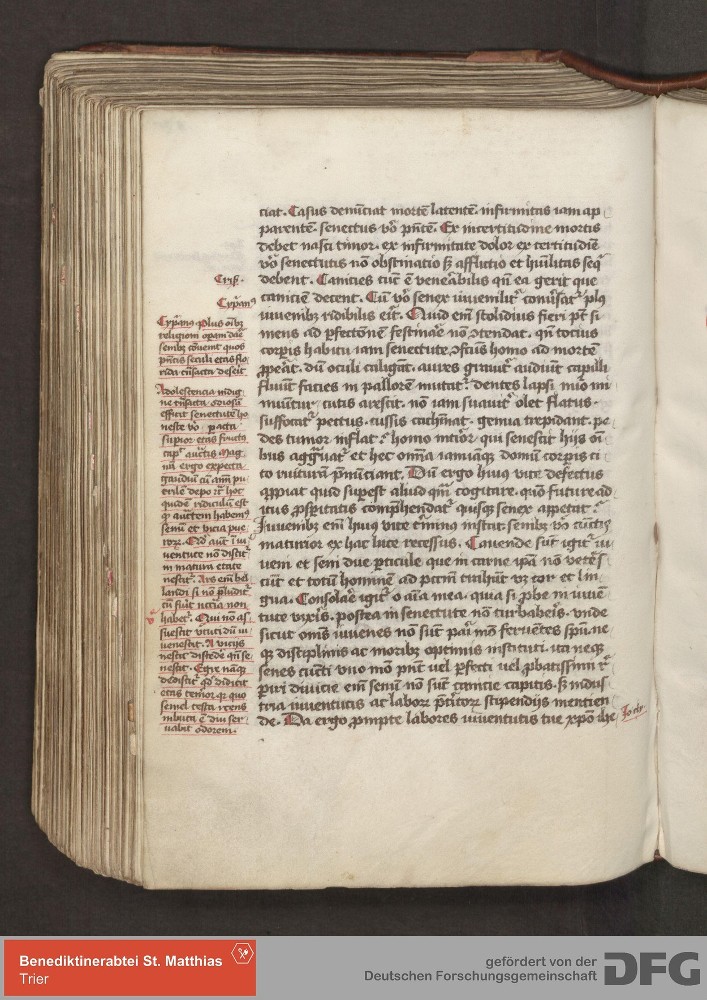 ciat. Casus denūciat mortē latentē. infirmitas iam ap
parentē. senectus v̊o p̄ntē. Ex incertitudine mortis
debet nasci timor. ex infirmitate dolor ex certitudīe
v̊o senectutis nō obstinatio sꝫ afflictio et hūilitas seq̇
debent. Canicies tūc ē venerabilis qn̄ ea gerit que
caniciem decent. Cū v̊o senex iuuenilit̄ cōuersat̄ plꝰ
iuuenibꝫ ridibilis erit. Quid em̄ stolidius fieri pt̄ si
mens ad ꝑfectōnē festinare nō ꝯtendat. qn̄ tocius
corpis habitu iam senectute ꝯfectus homo ad mortē
ꝓperat. dū oculi caligant. aures grauit̄ audiunt capilli
fluūt facies in pallorē mutat̄ dentes lapsi
nuūtur. cutis arescit. nō iam suauit̄ olet flatus.
suffocat̄ pectus. tussis cachinat. genua trepidant. pe
des tumor inflat. homo qui senescit hijs oī
bus aggrauat̄ et hec om̄ia iamiāqꝫ domū corpis ci
to ruiturā p̄nūciant. Dū ergo huiꝰ vite defectus
apꝑiat quid supest aliud qm̄ cogitare. quō future ad
itus ꝓsperitatis comp̄hendat̄ quisqꝫ senex appetat.
Iuuenibꝫ em̄ huiꝰ vite t̄minus instat. senibꝫ v̊o cūctis
maturior ex hac luce recessus. Cauende sūt igit̄ iu
ueni et seni due ꝑticule que in carne ip̄a nō veteres
cūt et totū hominē ad pctm̄ trahūt vꝫ cor et lin
gua. Consolare igit̄ o aīa mea. quia si ꝓbe in iuuē
tute vixis. postea in senectute nō turbabeis. vnde
sicut om̄s iuuenes nō sūt pari mō feruētes spū. ne
qꝫ disciplinis ac moribꝫ optimis instituti. ita neqꝫ
senes cūcti vno mō pn̄t uel ꝑfecti uel ꝓbatissimi
ꝑiri diuicie em̄ senū nō sūt canicie capitis. sꝫ indus
tria iuuentutis ac laborꝝ p̄titorꝝ stipendijs mencien
de. Da ergo ꝓmpte labores iuuentutis tue xp̄o ihe
Cris.
Cyp̄anꝰ
Cyp̄anꝰ Plus oībꝫ
religioni opam dare
senibꝫ ꝯuenit quos
p̄ntis seculi etas flo
rida trāsacta deserit
Adolescencia indig
ne trāsacta odiosā
efficit senectutē ho
neste v̊o pacta
supior etas fructꝰ
cap̄ auctꝰ Mag
nū ergo expecta
gaudiū cū aīm pu
erilē depo
quidē ridiculū est
qꝫ auctem habemꝰ
senū et vicia pue
rorꝝ. Qd̄ aūt ī iu
uentute nō discit̄
in matura etate
nescit̄. Ars em̄ bl
landi si nō pludit̄
cū fiūt
habet̄. Qui nō as
suescit vtuti dū iu
uenescit. A vicijs
nescit discedere qn̄ se
nescit. Egre nāqꝫ
dediscit̄ qd̄ didicit
etas tenior. qꝫ quo
semel testa recens
inbuta ē diu ser
uabit odorem.
Benediktinerabtei St. Matthias
Trier
gefördert von der
Deutschen Forschungsgemeinschaft
DFG